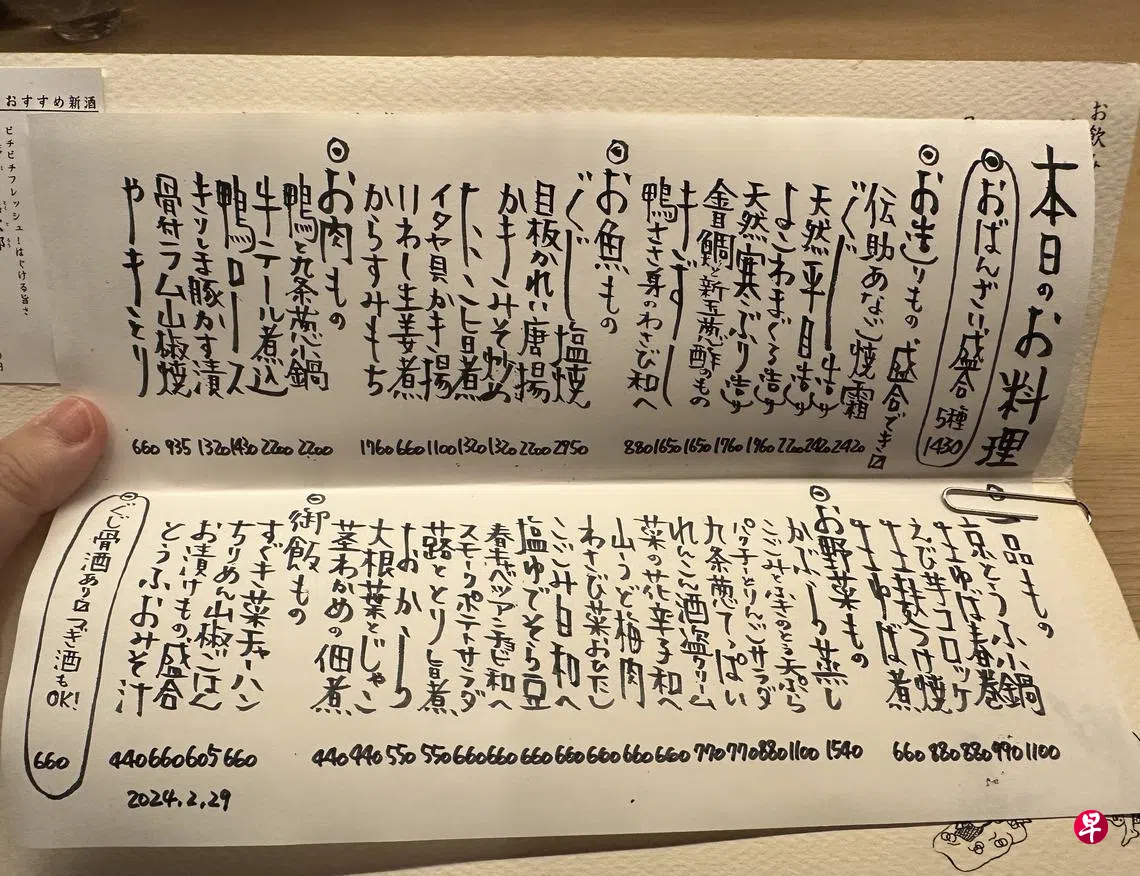 お飲み
本日のお料理
◎おばんざい盛合 5種 1430
◎お造りもの 盛合でき〼
伝助あなご焼霜 2420
ぐじ造り 2420
天然平目造り 2200
よこわまぐろ造り 1760
天然寒ぶり造り 1760
金目鯛と新玉葱酢のもの 1650
きずし 1650
鴨ささ身のわさび和へ 880
◎お魚もの
ぐじ塩焼 2750
目板かれい唐揚 2200
かきみそ炒め 1320
たいこ旨煮 1320
イタヤ貝かき揚 1100
いわし生姜煮 660
からすみもち 1760
◎お肉もの
鴨と九条葱小鍋 2200
牛テール煮込 2200
鴨ロース 1430
きりしま豚かす漬 1320
骨付ラム山椒焼 935
やきとり 660
◎一品もの
京とうふ小鍋 1100
生ゆば春巻 990
えび芋コロッケ 880
生麩つけ焼 880
生ゆば煮 660
◎お野菜もの
かぶら蒸し 1540
こごみとふきのとう天ぷら 1100
パクチーとりんごサラダ 880
九条葱てっぱい 770
れんこん酒盗クリーム 770
菜の花辛子和へ 660
山うど梅肉 660
わさび菜おひたし 660
こごみ白和へ 660
塩ゆでそら豆 660
春キャベツアンチョビ和へ 660
スモークポテトサラダ 660
蕗ととり旨煮 550
おから 550
大根葉とじゃこ 440
茎わかめの佃煮 440
◎御飯もの
すぐき菜チャーハン 660
ちりめん山椒ごはん 605
お漬けもの盛合 660
とうふおみそ汁 440
◎ぐじ骨酒あり〼 つぎ酒もOK! 660
2024.2.29
おすすめ新酒
ピチピチフレッシュ！はじける旨さ
早